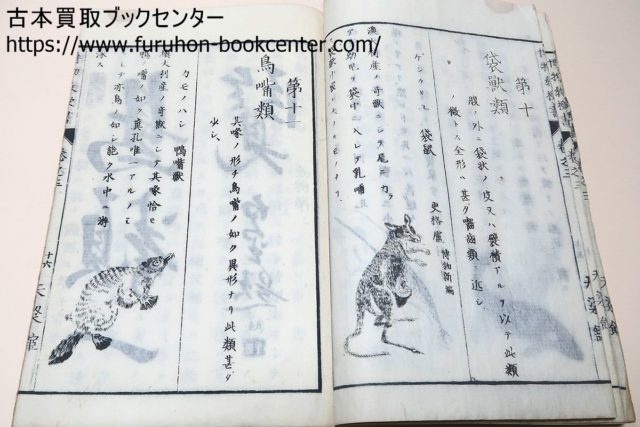 古本買取ブックセンター
https://www.furuhon-bookcenter.com/
第十
袋獣類
腹ノ外ニ袋状ノ皮又ハ襞積アルヲ以テ此類
ノ徴トス全形ハ甚ダ囓歯類ニ近シ
袋鼠
更格盧 博物新編
産ノ奇獣ニシテ尾ニ力
幼児ヲ袋中ニ入レテ乳哺
第十一
鳥嘴類
其喙ノ形チ鳥嘴ノ如ク異形ナリ此類甚ダ
少シ
カモノハシ 鴨嘴獣
太利産ノ奇獣ニシテ其喙恰モ
鴨嘴ノ如ク糞孔唯一アルノミ
ニシテ亦鳥ノ如シ能ク水中ニ游
泳ス
十六